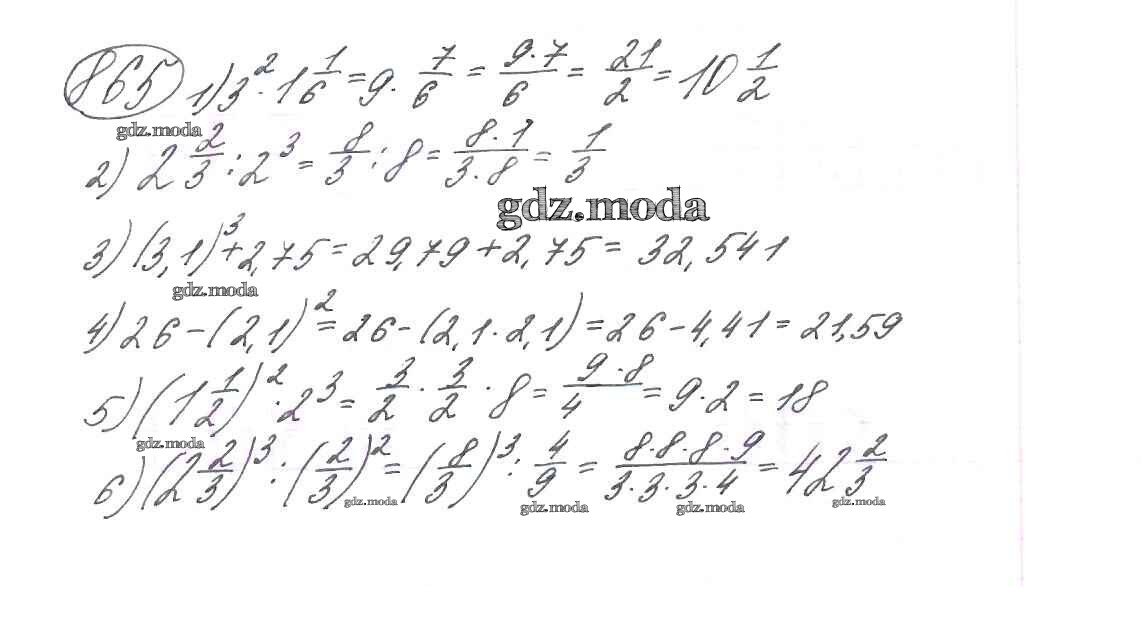 865 1) 3² · 1 1/6 = 9 · 7/6 = 9·7/6 = 21/2 = 10 1/2
gdz.moda
2) 2 2/3 : 2³ = 8/3 : 8 = 8·1/3·8 = 1/3
gdz.moda
3) (3,1)³ + 2,75 = 29,79 + 2,75 = 32,541
gdz.moda
4) 26 - (2,1)² = 26 - (2,1 · 2,1) = 26 - 4,41 = 21,59
5) (1 1/2)² · 2³ = 3/2 · 3/2 · 8 = 9·8/4 = 9 · 2 = 18
gdz.moda
6) (2 2/3)³ : (2/3)² = (8/3)³ : 4/9 = 8·8·8·9/3·3·3·4 = 42 2/3
gdz.moda gdz.moda gdz.moda gdz.moda